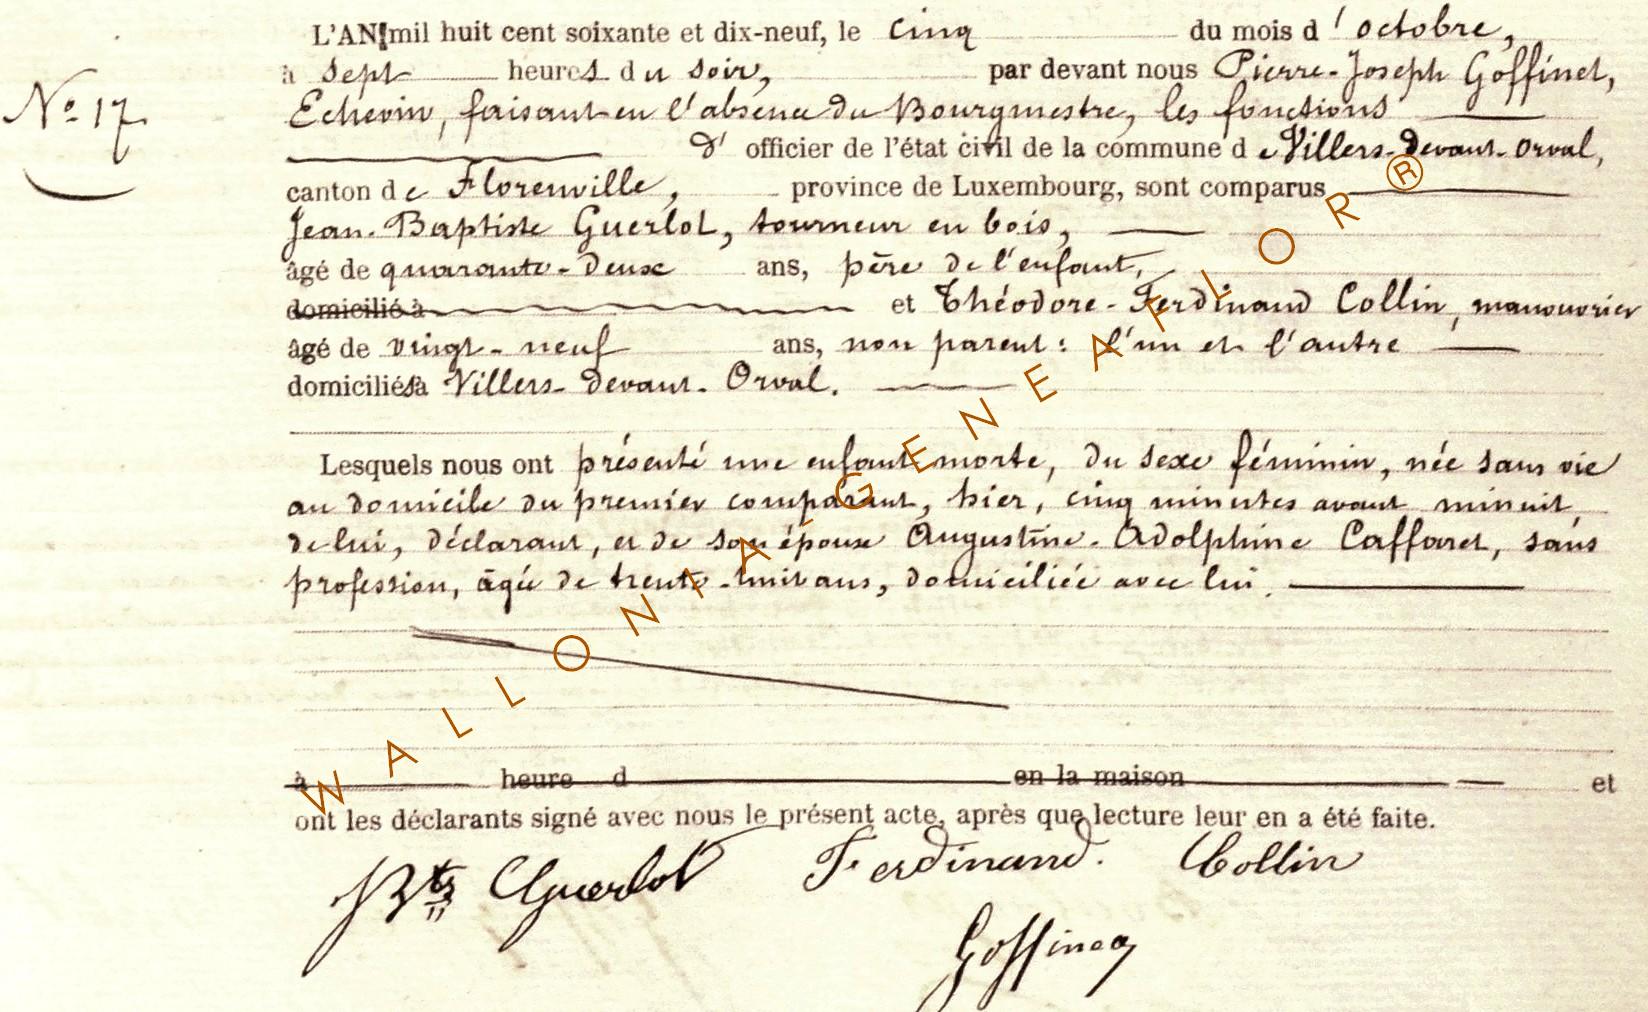 L'AN mil huit cent soixante et dix-neuf, le cinq du mois d'octobre,
à sept heures du soir, par devant nous Pierre-Joseph Goffinet,
N° 17
Echevin, faisant en l'absence du Bourgmestre, les fonctions
d' officier de l'état civil de la commune de Villers-devant-Orval,
canton de Florenville, province de Luxembourg, sont comparus
Jean-Baptiste Guerlot, tourneur en bois,
âgé de quarante-deux ans, père de l'enfant,
domicilié à et Théodore-Ferdinand Collin, manouvrier
âgé de vingt-neuf ans, non parent: l'un et l'autre
domiciliés à Villers-devant-Orval.
Lesquels nous ont présenté une enfant morte, du sexe féminin, née sans vie
au domicile du premier comparant, hier, cinq minutes avant minuit,
de lui, déclarant, et de son épouse Augustine-Adolphine Caffaret, sans
profession, âgée de trente-huit ans, domiciliée avec lui.
à heure d en la maison et
ont les déclarants signé avec nous le présent acte, après que lecture leur en a été faite.
JBte Guerlot Ferdinand. Collin
Goffinet
WALLONIA-GENEAFLOR®